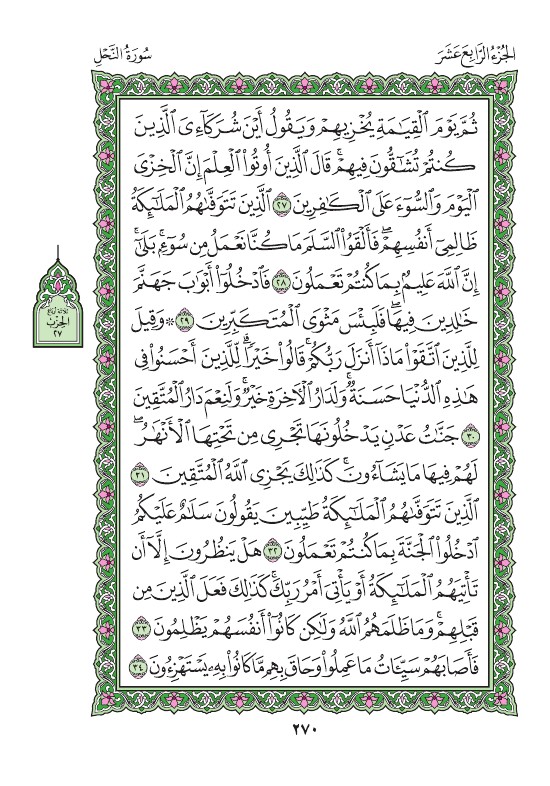 الجُزْءُ الرَّابِعَ عَشَرَ
سُورَةُ النَّحْلِ
ثُمَّ يَوْمَ ٱلْقِيَٰمَةِ يُخْزِيهِمْ وَيَقُولُ أَيْنَ شُرَكَآءِىَ ٱلَّذِينَ
كُنتُمْ تُشَٰٓقُّونَ فِيهِمْ ۚ قَالَ ٱلَّذِينَ أُوتُوا۟ ٱلْعِلْمَ إِنَّ ٱلْخِزْىَ
ٱلْيَوْمَ وَٱلسُّوٓءَ عَلَى ٱلْكَٰفِرِينَ ٢٧ ٱلَّذِينَ تَتَوَفَّىٰهُمُ ٱلْمَلَٰٓئِكَةُ
ظَالِمِىٓ أَنفُسِهِمْ ۖ فَأَلْقَوُا۟ ٱلسَّلَمَ مَا كُنَّا نَعْمَلُ مِن سُوٓءٍۭ ۚ بَلَىٰٓ
إِنَّ ٱللَّهَ عَلِيمٌۢ بِمَا كُنتُمْ تَعْمَلُونَ ٢٨ فَٱدْخُلُوٓا۟ أَبْوَٰبَ جَهَنَّمَ
خَٰلِدِينَ فِيهَا ۖ فَلَبِئْسَ مَثْوَى ٱلْمُتَكَبِّرِينَ ٢٩ ۞ وَقِيلَ
لِلَّذِينَ ٱتَّقَوْا۟ مَاذَآ أَنزَلَ رَبُّكُمْ ۚ قَالُوا۟ خَيْرًا ۗ لِّلَّذِينَ أَحْسَنُوا۟ فِى
هَٰذِهِ ٱلدُّنْيَا حَسَنَةٌ ۚ وَلَدَارُ ٱلْءَاخِرَةِ خَيْرٌ ۚ وَلَنِعْمَ دَارُ ٱلْمُتَّقِينَ
٣٠ جَنَّٰتُ عَدْنٍ يَدْخُلُونَهَا تَجْرِى مِن تَحْتِهَا ٱلْأَنْهَٰرُ ۖ
لَهُمْ فِيهَا مَا يَشَآءُونَ ۚ كَذَٰلِكَ يَجْزِى ٱللَّهُ ٱلْمُتَّقِينَ ٣١
ٱلَّذِينَ تَتَوَفَّىٰهُمُ ٱلْمَلَٰٓئِكَةُ طَيِّبِينَ ۙ يَقُولُونَ سَلَٰمٌ عَلَيْكُمُ
ٱدْخُلُوا۟ ٱلْجَنَّةَ بِمَا كُنتُمْ تَعْمَلُونَ ٣٢ هَلْ يَنظُرُونَ إِلَّآ أَن
تَأْتِيَهُمُ ٱلْمَلَٰٓئِكَةُ أَوْ يَأْتِىَ أَمْرُ رَبِّكَ ۚ كَذَٰلِكَ فَعَلَ ٱلَّذِينَ مِن
قَبْلِهِمْ ۚ وَمَا ظَلَمَهُمُ ٱللَّهُ وَلَٰكِن كَانُوٓا۟ أَنفُسَهُمْ يَظْلِمُونَ ٣٣
فَأَصَابَهُمْ سَيِّـَٔاتُ مَا عَمِلُوا۟ وَحَاقَ بِهِم مَّا كَانُوا۟ بِهِۦ يَسْتَهْزِءُونَ ٣٤
الحِزْبُ
٢٧
٢٧٠